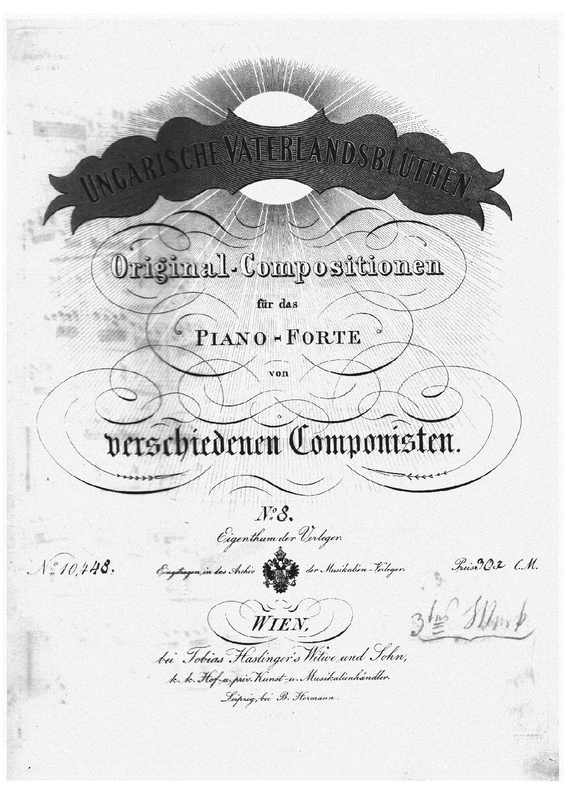 UNGARISCHE VATERLANDSBLÜTHEN.
Original-Compositionen
für das
PIANO-FORTE
von
verschiedenen Componisten.
No. 8.
Eigenthum der Verleger.
No. 10,448. Eingetragen in das Archiv der Musikalien-Verleger. Preis 30 x C.M.
WIEN,
3tes Werk
bei Tobias Haslinger's Witwe und Sohn,
k. k. Hof-u. priv. Kunst-u. Musikalienhändler.
Leipzig, bei B. Hermann.